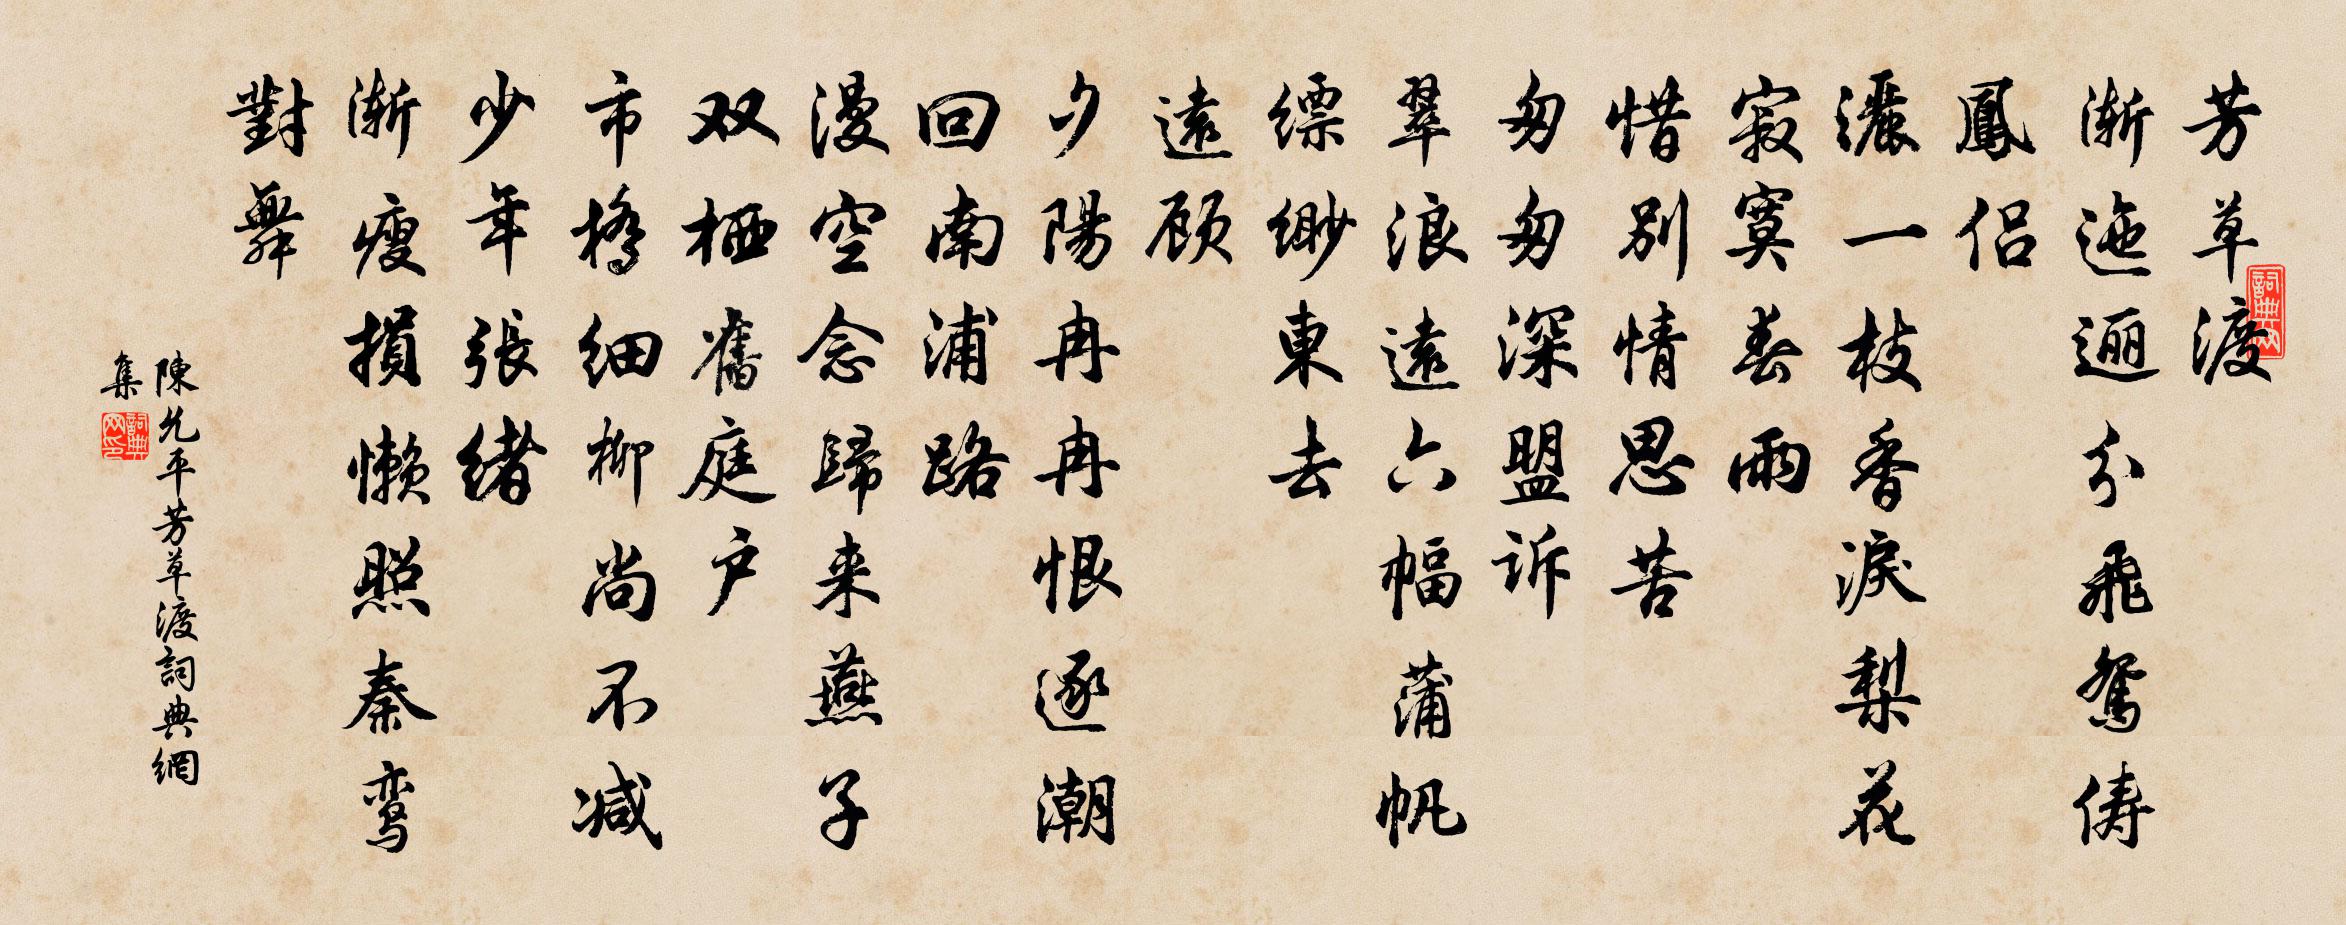 芳草渡
漸迤逦分飛鴛俦
鳳侣
灑一枝香淚梨花
寂寞春雨
惜别情思苦
匆匆深盟诉
翠浪遠六幅蒲帆
缥缈東去
遠顾
夕陽冉冉恨逐潮
回南浦路
漫空念歸来燕子
双栖舊庭户
市橋细柳尚不减
少年張绪
漸瘦損懒照秦鸾
對舞
陳允平芳草渡詞典網
集
詞典网
詞典网印